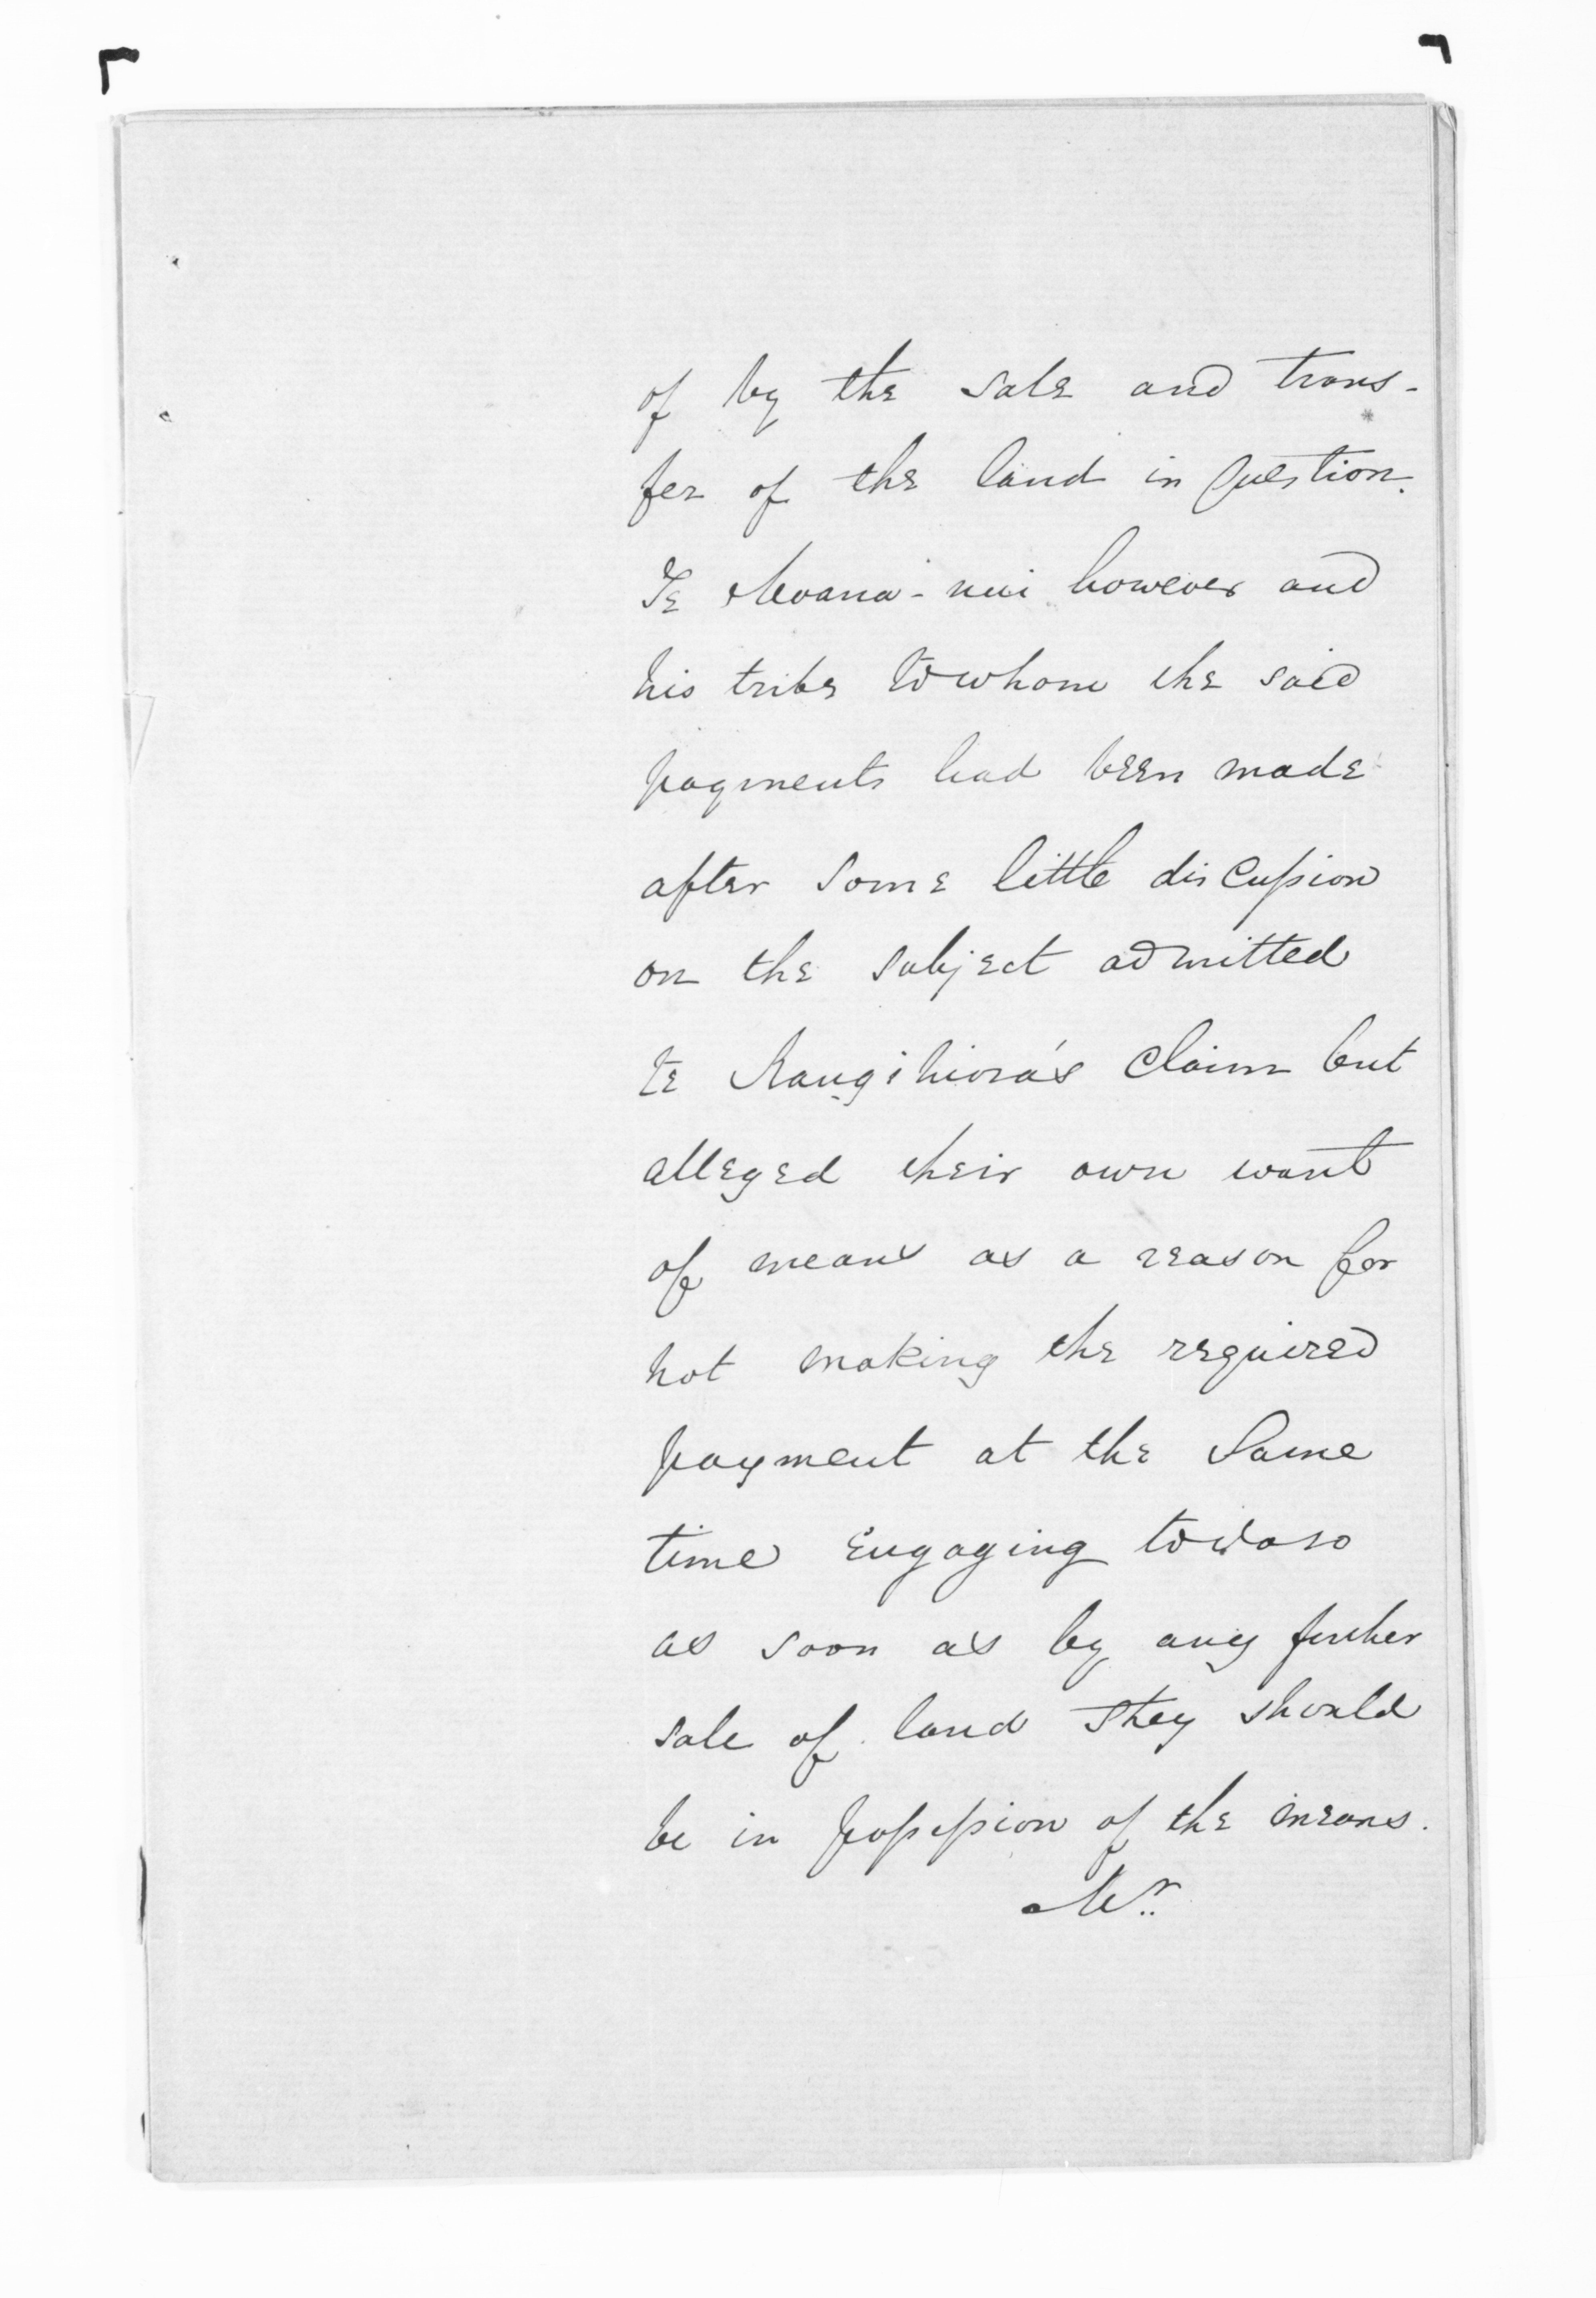 of by the sale and trans-
fer of the land in Question.
Te Moana-nui however and
his tribe to whom the said
payments had been made
after some little discussion
on the subject admitted
te Rangihiroa's Claim but
alleged their own want
of means as a reason for
not making the required
payment at the Same
time Engaging to do so
as soon as by any further
sale of land they should
be in possession of the means.
Mr